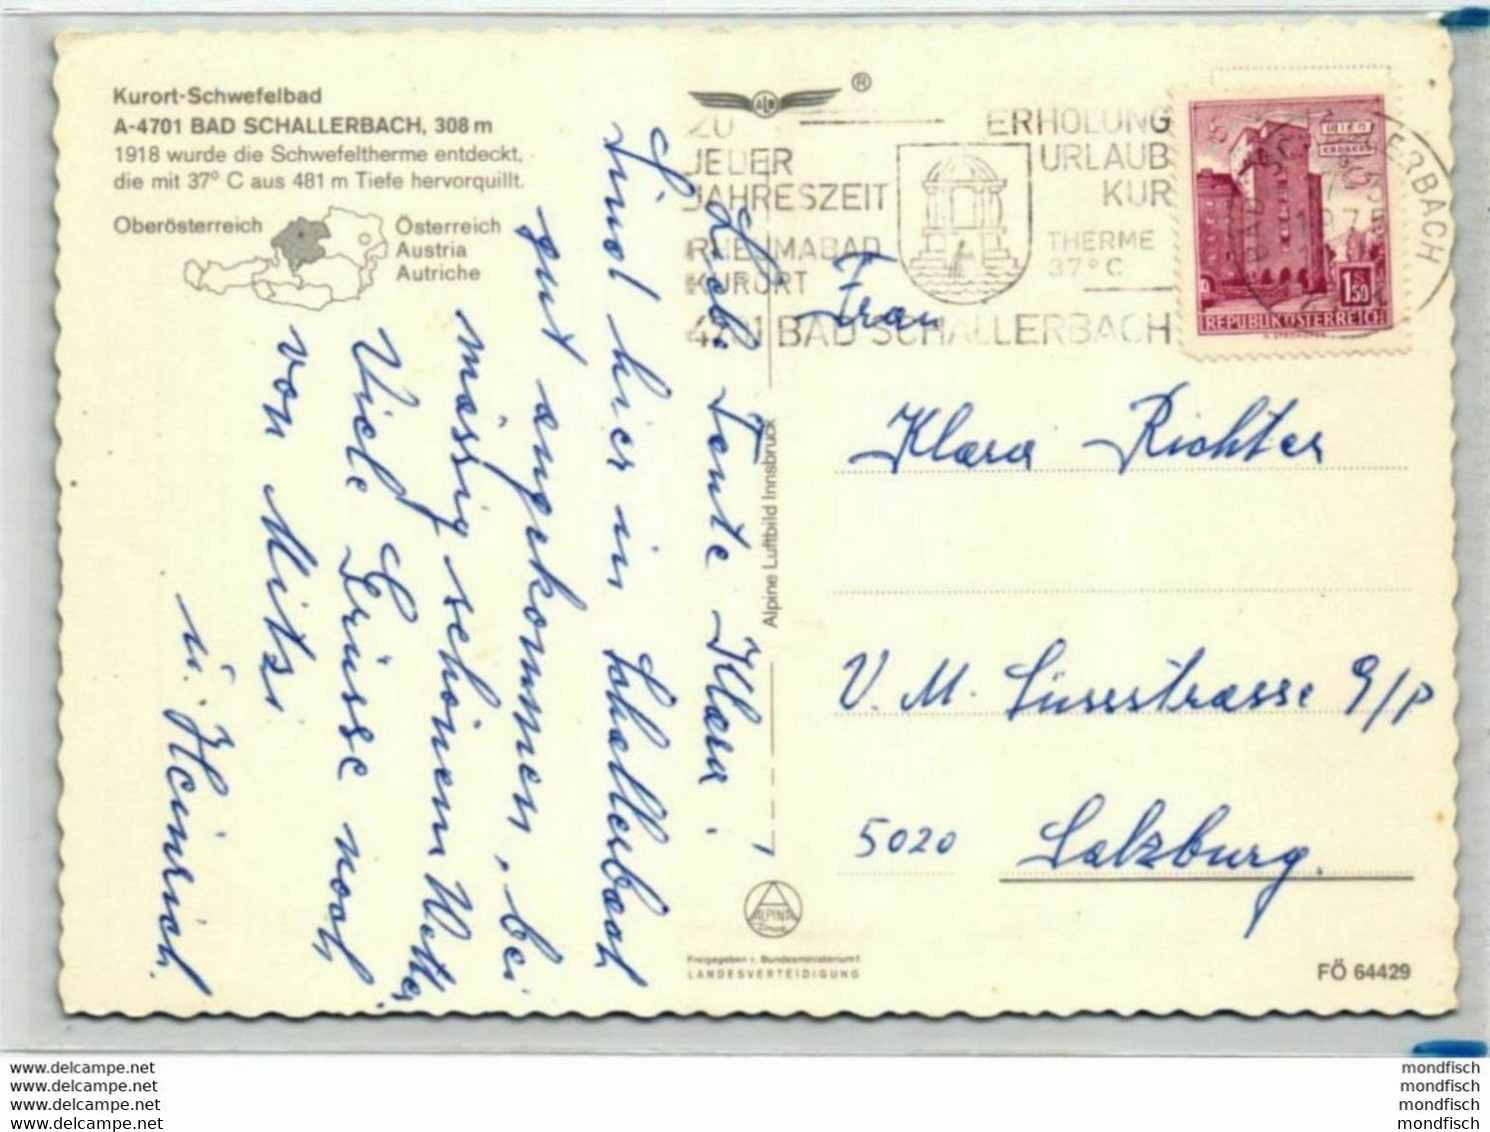 Kurort-Schwefelbad
A-4701 BAD SCHALLERBACH, 308 m
1918 wurde die Schwefeltherme entdeckt,
die mit 37° C aus 481 m Tiefe hervorquillt.
Oberösterreich
Österreich
Austria
Autriche
Liebe Tante Klara.
Sind hier in Schallerbach
gut angekommen, bei
mässig schönem Wetter,
Viele Grüsse noch
von Mitzi
u. Heinrich.
Alpine Luftbild Innsbruck
®
ZU
JEDER
JAHRESZEIT
RHEUMABAD
KURORT
4701 BAD SCHALLERBACH
ERHOLUNG
URLAUB
KUR
THERME
37° C
WIEN
ERDBERG
1.50
REPUBLIK ÖSTERREICH
1975
Frau
Klara Richter
V. M. Süssstrasse 9/P
5020 Salzburg.
ALPINA
Freigegeben v. Bundesministerium f.
LANDESVERTEIDIGUNG
FÖ 64429
www.delcampe.net
www.delcampe.net
www.delcampe.net
www.delcampe.net
mondfisch
mondfisch
mondfisch
mondfisch